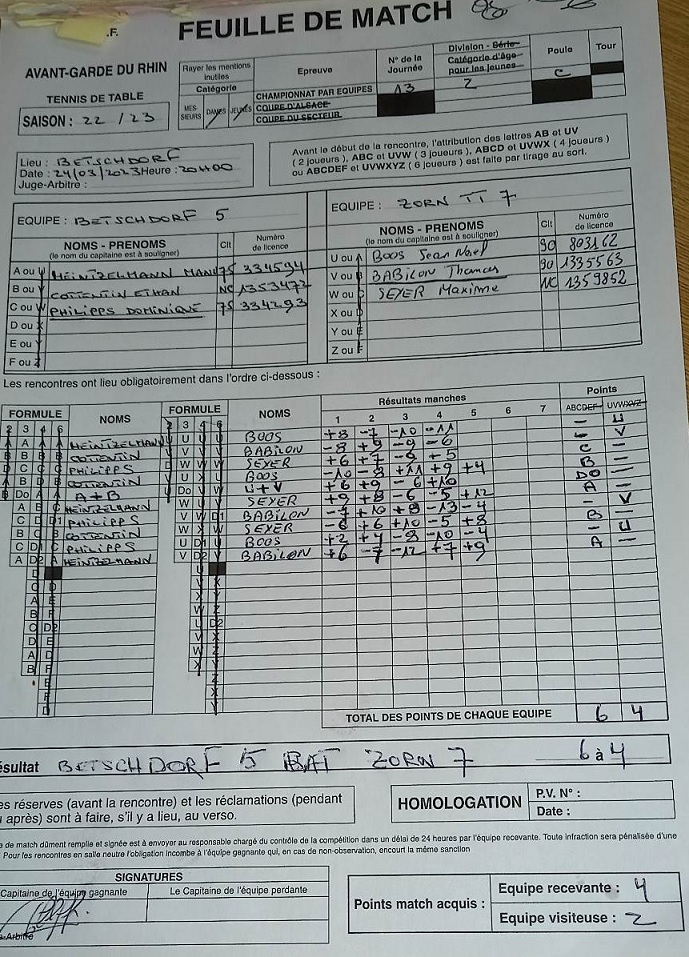 .F.
FEUILLE DE MATCH
AVANT-GARDE DU RHIN
TENNIS DE TABLE
SAISON : 22 / 23
Rayer les mentions inutiles
Catégorie
MES-SIEURS DAMES JEUNES
Epreuve
CHAMPIONNAT PAR EQUIPES
COUPE D'ALSACE
COUPE DU SECTEUR
N° de la Journée
13
Division - Série
Catégorie d'âge
pour les jeunes
2
Poule
C
Tour
Lieu : BETSCHDORF
Date : 24/03/2023 Heure : 20H00
Juge-Arbitre :
Avant le début de la rencontre, l'attribution des lettres AB et UV
( 2 joueurs ), ABC et UVW ( 3 joueurs ), ABCD et UVWX ( 4 joueurs )
ou ABCDEF et UVWXYZ ( 6 joueurs ) est faite par tirage au sort.
EQUIPE : BETSCHDORF 5
NOMS - PRENOMS
(le nom du capitaine est à souligner)
Clt
Numéro de licence
A ou U HEINTZELMANN MANU 75 334594
B ou V COTTENTIN ETHAN NC 1353472
C ou W PHILIPPS DOMINIQUE 75 334293
D ou X
E ou Y
F ou Z
EQUIPE : ZORN TT 7
NOMS - PRENOMS
(le nom du capitaine est à souligner)
Clt
Numéro de licence
U ou A BOOS Jean Noel 90 803162
V ou B BABILON Thomas 90 1335563
W ou C SEYER Maxime NC 1359852
X ou D
Y ou E
Z ou F
Les rencontres ont lieu obligatoirement dans l'ordre ci-dessous :
FORMULE NOMS FORMULE NOMS Résultats manches Points
2 3 4 6 2 3 4 6 1 2 3 4 5 6 7 ABCDEF UVWXYZ
HEINTZELMANN BOOS +8 -7 -10 -11 - U
COTTENTIN BABILON -8 +9 -9 -6 - V
PHILIPPS SEYER +6 +7 -9 +5 C -
COTTENTIN BOOS -10 -8 +11 +9 +4 B -
A+B U+V +6 +9 -6 +10 DO -
HEINTZELMANN SEYER +9 +8 -6 -5 +12 A -
PHILIPPS BABILON -7 +10 +8 -13 -4 - V
COTTENTIN SEYER -6 +6 +10 -5 +8 B -
PHILIPPS BOOS +2 +4 -8 -10 -4 - U
HEINTZELMANN BABILON +6 -7 -12 +7 +9 A -
TOTAL DES POINTS DE CHAQUE EQUIPE 6 4
ésultat BETSCHDORF 5 BAT ZORN 7 6 à 4
es réserves (avant la rencontre) et les réclamations (pendant
u après) sont à faire, s'il y a lieu, au verso.
HOMOLOGATION
P.V. N° :
Date :
e de match dûment remplie et signée est à envoyer au responsable chargé du contrôle de la compétition dans un délai de 24 heures par l'équipe recevante. Toute infraction sera pénalisée d'une
Pour les rencontres en salle neutre l'obligation incombe à l'équipe gagnante qui, en cas de non-observation, encourt la même sanction
SIGNATURES
Capitaine de l'équipe gagnante
Le Capitaine de l'équipe perdante
Points match acquis :
Equipe recevante : 4
Equipe visiteuse : 2